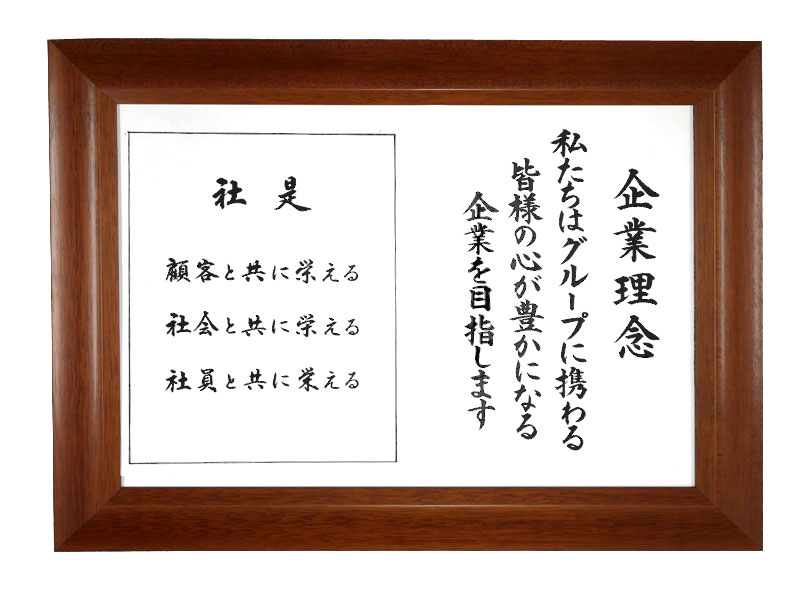 企業理念
私たちはグループに携わる
皆様の心が豊かになる
企業を目指します
社是
顧客と共に栄える
社会と共に栄える
社員と共に栄える